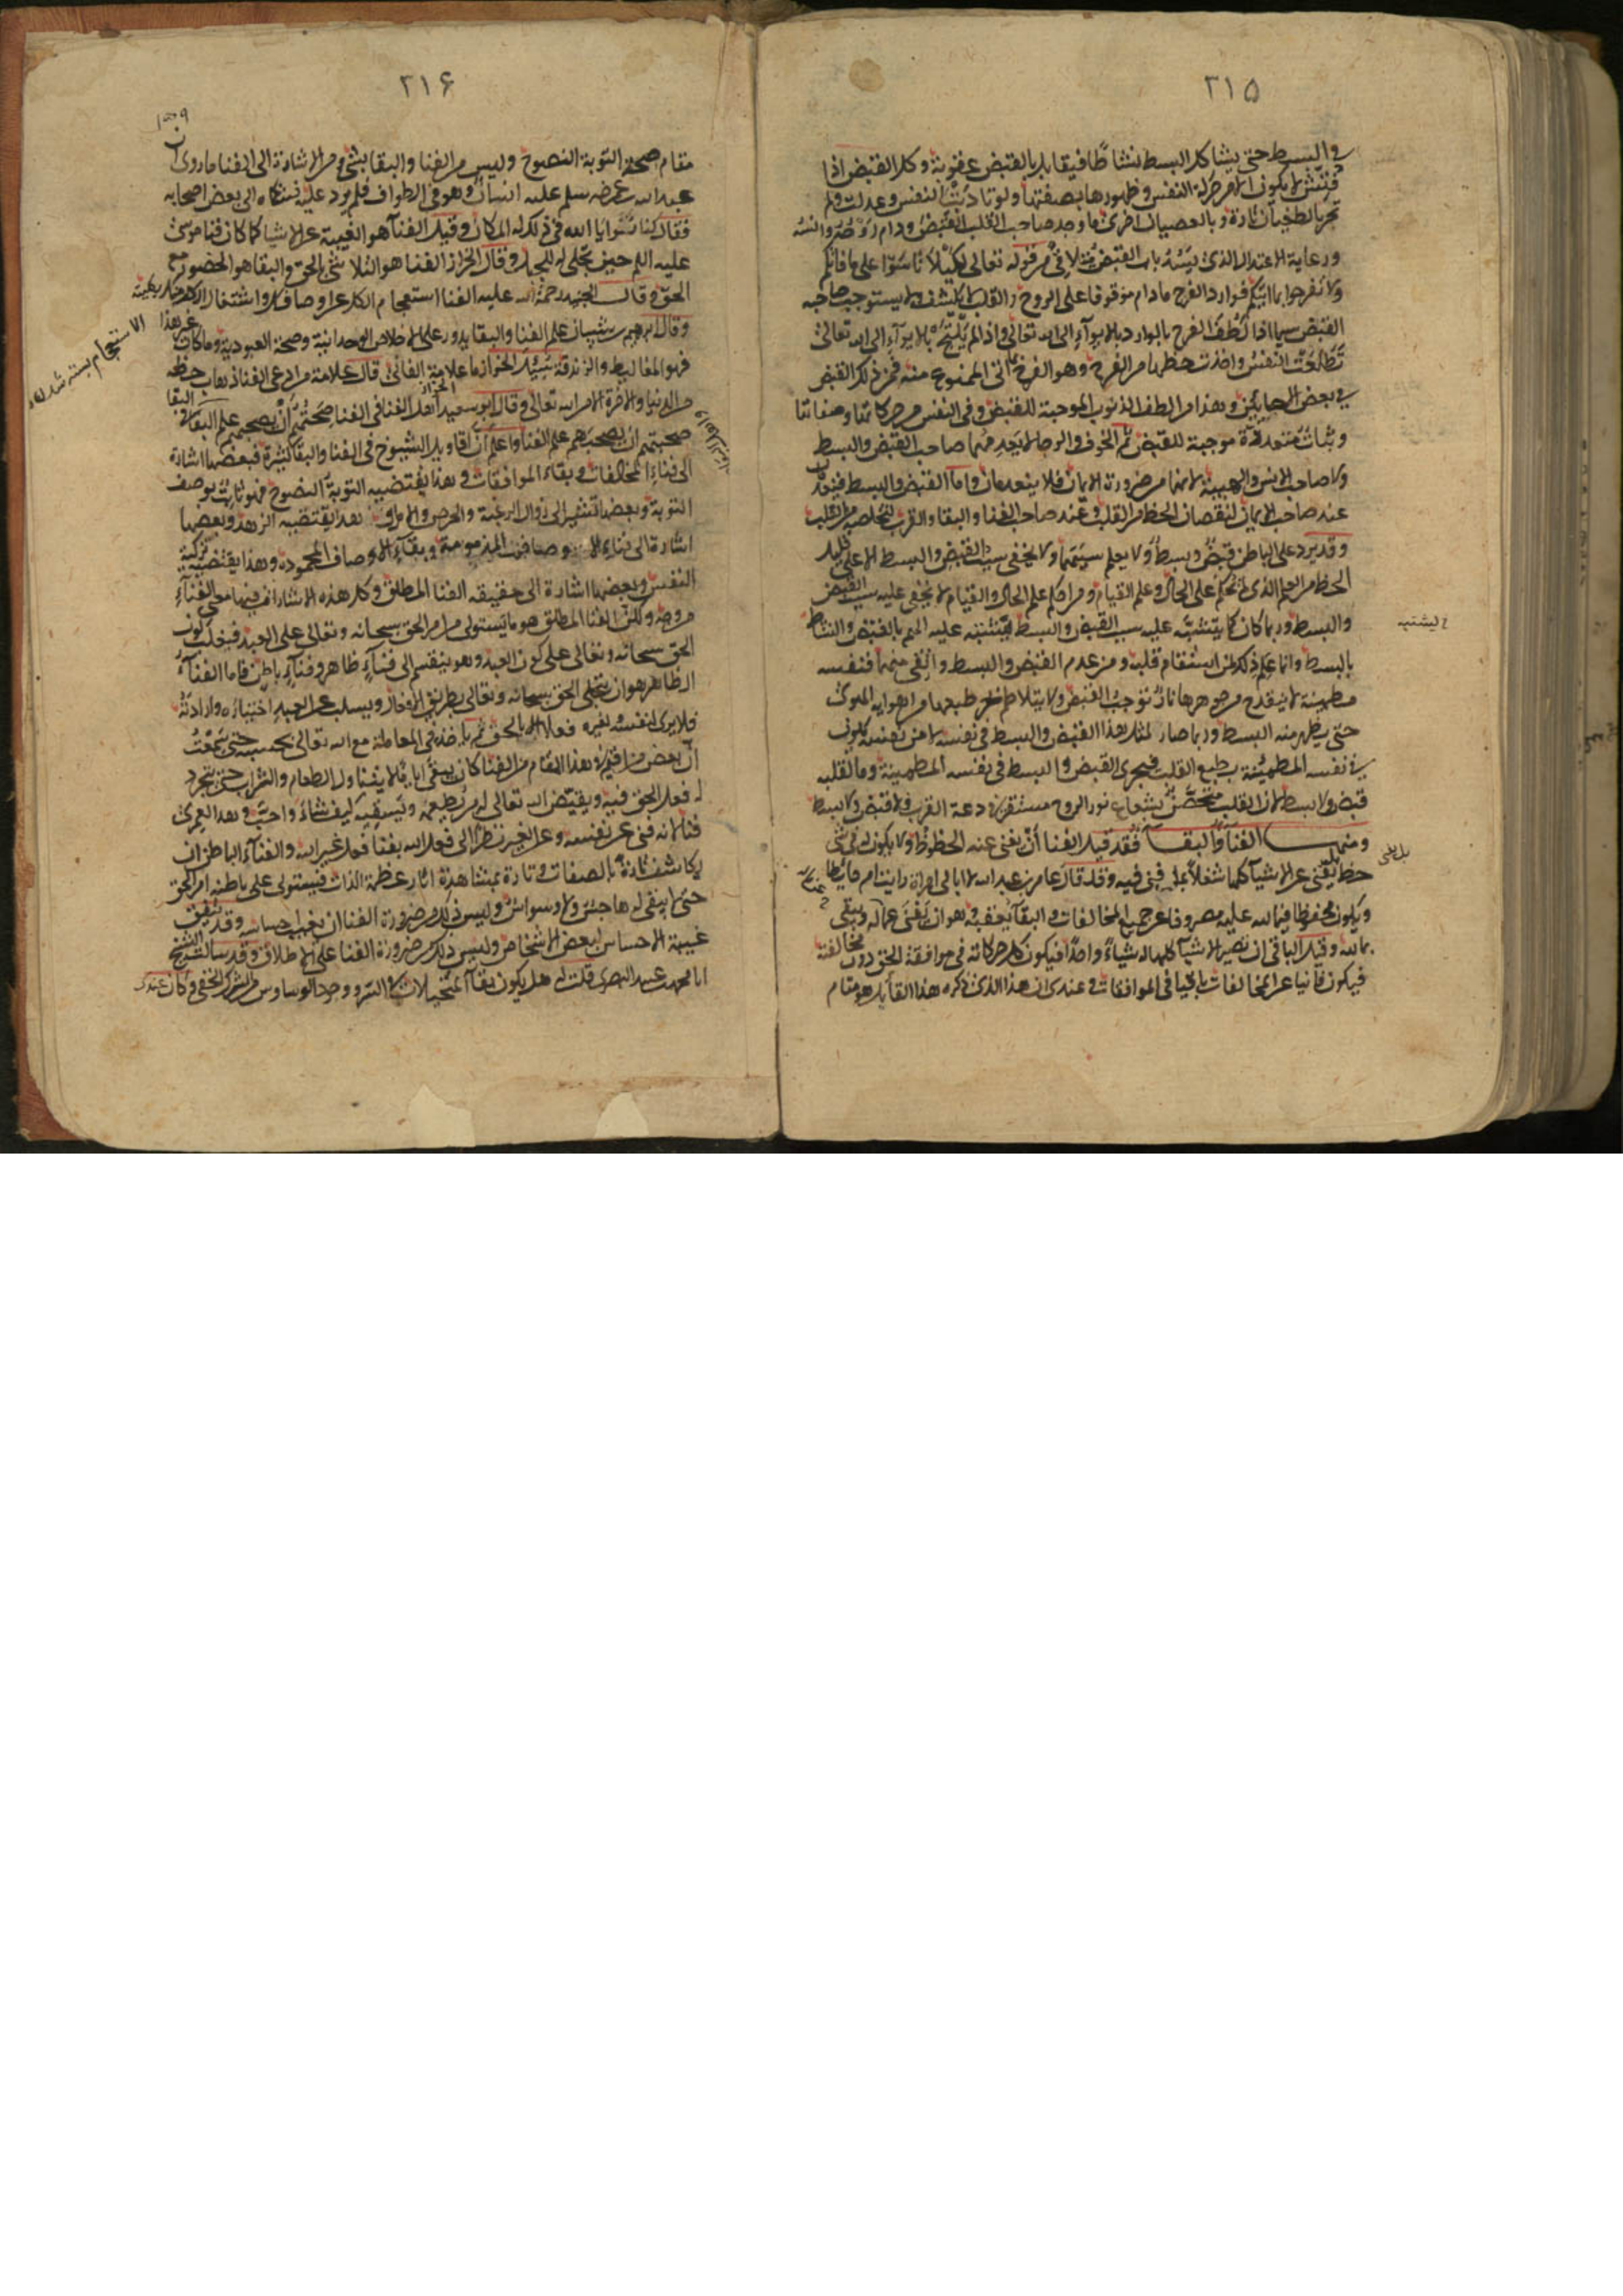 ٢١۵
والبسط حتى يشاكل البسط نشاطا فيقابل بالقبض عقوبة وكل القبض اذا
فتش لا يكون الا من حركة النفس وظهورها بصفتها ولو تادبت النفس وعدلت ولم
تجر بالطغيان تارة وبالعصيان اخرى ما وجد صاحب القلب القبض ودام روحه وانسه
ورعاية الاعتدال الذى يسد باب القبض متلاق من قوله تعالى لكيلا تأسوا على ما فاتكم
ولا تفرحوا بما اتيكم فوارد الفرح مادام موقوفا على الروح والقلب لا يكثف ولا يستوجب صاحبه
القبض سيما اذا لطف الفرح بالوارد بالايواء الى الله تعالى واذا لم يلتج بالايواء الى الله تعالى
تطلعت النفس واخذت حظها من الفرح وهو الفرح بما اتى الممنوع منه فمن ذلك القبض
فى بعض الاحايين وهذا من الطف الذنوب الموجبة للقبض وفى النفس من حركاتها وصفاتها
وثبات متعددة موجبة للقبض ثم الخوف والرجا لا يعدمهما صاحب القبض والبسط
ولا صاحب الانس والهيبة لانهما من ضرورة الايمان فلا ينعدمان واما القبض والبسط فينعدمان
عند صاحب الايمان لنقصان الحظ من القلب وعند صاحب الفنا والبقا والقرب لتخلصه من القلب
وقد يرد على الباطن قبض وبسط ولا يعلم سببهما ولا يخفى سبب القبض والبسط الا على قليل
الحظ من العلم الذى لم يحكم على الحال وعلم القيام ومن احكم علم الحال والقيام لا يخفى عليه سبب القبض
والبسط وربما كان كما يشتبه عليه سبب القبض والبسط يشتبه عليه الهم بالقبض والنشاط
ع ليشتبه
بالبسط وانما علم ذلك لمن استقام قلبه ومن عدم القبض والبسط وارتقى منهما فنفسه
مطمينة لا ينقدح من جوهرها نار توجب القبض ولا يتلاطم بحر طبعها من اهوية الهوى
حتى يظهر منه البسط وربما صار لمثل هذا القبض والبسط فى نفسه لا من نفسه فتكون
نفسه المطمئنة بطبع القلب فيجرى القبض والبسط فى نفسه المطمئنة وما لقلبه
قبض ولا بسط لان القلب متحصن بشعاع نور الروح مستقر فى دعة القرب فلا قبض ولا بسط
ومنها الفناء والبقاء فقد قيل الفنا ان يفنى عنه الحظوظ فلا يكون له فى شى
حظ بل يفنى عن الاشياء كلها شغلا بمن فنى فيه وقد قال عامر بن عبدالله لا ابالى امراة رايت ام حايطا
ويكون محفوظا فيما لله عليه مصروفا عن جميع المخالفات والبقاء يعقبه وهو ان يفنى عما له ويبقى
بما لله وقيل الباقى ان تصير الاشيا كلها له شيأ واحدا فيكون كل حركاته فى موافقة الحق دون مخالفته
فيكون فانيا عن المخالفات باقيا فى الموافقات وعندى ان هذا الذى ذكره هذا القائل هو مقام
٢١۶
مقام صحة التوبة النصوح وليس من الفنا والبقا بشى ومن الاشارة الى الفنا ما روى ان
عبدالله بن عمر رضه سلم عليه انسان وهو فى الطواف فلم يرد عليه فشكاه الى بعض اصحابه
فقال كنا نتراءى الله فى ذلك المكان وقيل الفنآ هو الغيبة عن الاشيا كما كان فنا موسى
عليه السلم حين تجلى ربه للجبل وقال الخراز الفنا هو التلاشى بالحق والبقا هو الحضور مع
الحق وقال الجنيد رحمة الله عليه الفنا استعجام الكل عن اوصافك واشتغال الكل منك بكليته
وقال ابرهيم بن شيبان علم الفنا والبقا يدور على الاخلاص الوحدانية وصحة العبودية وما كان غير هذا
الاستعجام بسته شدن
فهو المغاليط والزندقة سئل الخراز ما علامة الفانى قال علامة من ادعى الفنا ذهاب حظه
من الدنيا والآخرة الا من الله تعالى وقال ابو سعيد الخراز اهل الفنا فى الفنا صحتهم ان يصحبهم علم البقا واهل البقا فى البقا
صحتهم ان يصحبهم علم الفنا واعلم ان اقاويل الشيوخ فى الفنا والبقا كثيرة فبعضها اشارة
الى فناء المخالفات وبقاء الموافقات وهذا يقتضيه التوبة النصوح فهو ثابت بوصف
التوبة وبعضها تشير الى زوال الرغبة والحرص والامل وهذا يقتضيه الزهد وبعضها
اشارة الى فناء الاوصاف المذمومة وبقاء الاوصاف المحمودة وهذا يقتضيه تزكية
النفس وبعضها اشارة الى حقيقة الفنا المطلق وكل هذه الاشارات فيها معنى الفناء
من وجه ولكن الفنا المطلق هو ما يستولى من امر الحق سبحانه وتعالى على العبد فيغلب كون
الحق سبحانه وتعالى على كون العبد وهو ينقسم الى فناء ظاهر وفناء باطن فاما الفناء
الظاهر هو ان يتجلى الحق سبحانه وتعالى بطريق الافعال ويسلب عن العبد اختياره وارادته
فلا يرى لنفسه ولغيره فعلا الا بالحق ثم ياخذ فى المعاملة مع الله تعالى بحسبه حتى سمعت
ان بعض من اقيم فى هذا المقام من الفنا كان يبقى اياما لا يتناول الطعام والشراب حتى يتجرد
له فعل الحق فيه ويقيض الله تعالى له من يطعمه ويسقيه كيف شاء واحب وهذا لعمرى
فنا لانه فنى عن نفسه وعن الغير نظرا الى فعل الله بفناء فعل غير الله والفناء الباطن ان
يكاشف تارة بالصفات وتارة بمشاهدة اثار عظمة الذات فيستولى على باطنه امر الحق
حتى لا يبقى له هاجس ولا وسواس وليس من ضرورة الفنا ان يغيب احساسه وقد يتفق
غيبة الاحساس لبعض الاشخاص وليس ذلك من ضرورة الفنا على الاطلاق وقد سالت الشيخ
ابا محمد بن عبد البصرى قلت له هل يكون بقاء المتخيلات فى السر ووجود الوساوس من الشرك الخفى وكان عندى